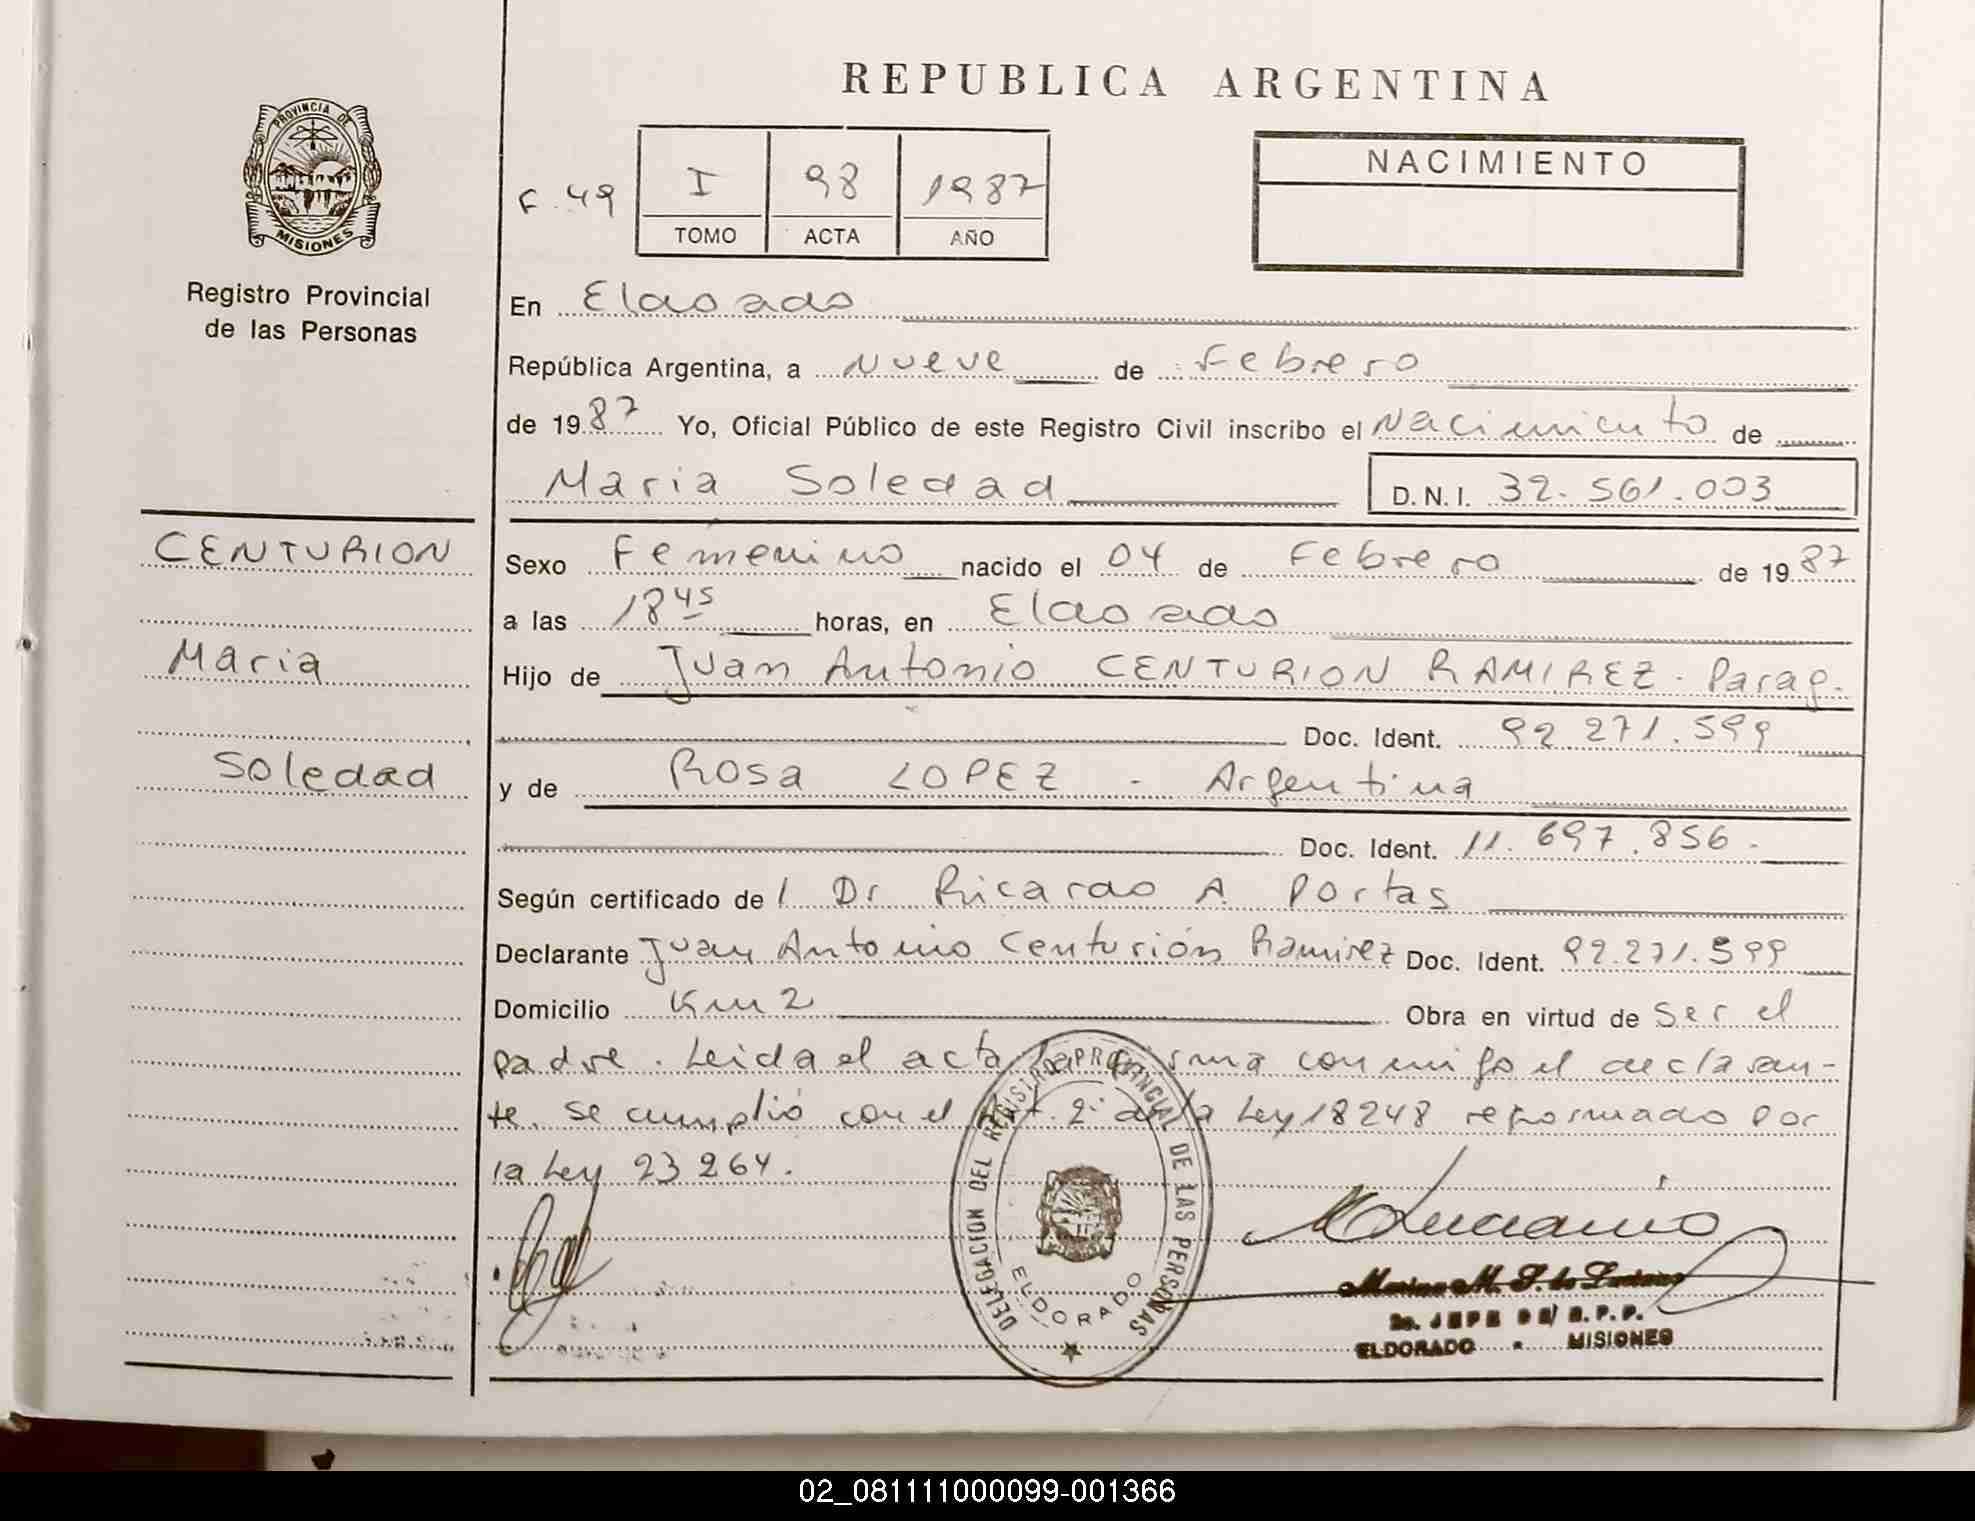 REPUBLICA ARGENTINA
PROVINCIA DE
MISIONES
Registro Provincial
de las Personas
F. 49
I 98 1987
TOMO ACTA AÑO
NACIMIENTO
En Eldorado
República Argentina, a Nueve de Febrero
de 1987 Yo, Oficial Público de este Registro Civil inscribo el Nacimiento de
Maria Soledad D.N.I. 32.561.003
CENTURION
Maria
Soledad
Sexo Femenino nacido el 04 de Febrero de 1987
a las 18 45 horas, en Eldorado
Hijo de Juan Antonio CENTURION RAMIREZ. Parag.
Doc. Ident. 92 271.599
y de Rosa LOPEZ - Argentina
Doc. Ident. 11.697.856.
Según certificado de l Dr Ricardo A Portas
Declarante Juan Antonio Centurión Ramirez Doc. Ident. 92.271.599
Domicilio Km 2 Obra en virtud de Ser el
padre. Leida el acta la firma conmigo el declaran-
te. Se cumplió con el Art. 2º de la Ley 18248 reformado por
la Ley 23 264.
DELEGACION DEL REGISTRO PROVINCIAL DE LAS PERSONAS
ELDORADO
2o. JEFE DE R.P.P.
ELDORADO - MISIONES
02_081111000099-001366